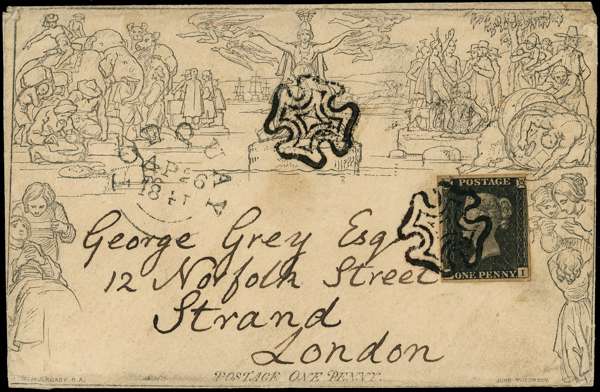 AP 26
1841
POSTAGE
ONE PENNY
George Grey Esq
12 Norfolk Street
Strand
London
POSTAGE ONE PENNY.